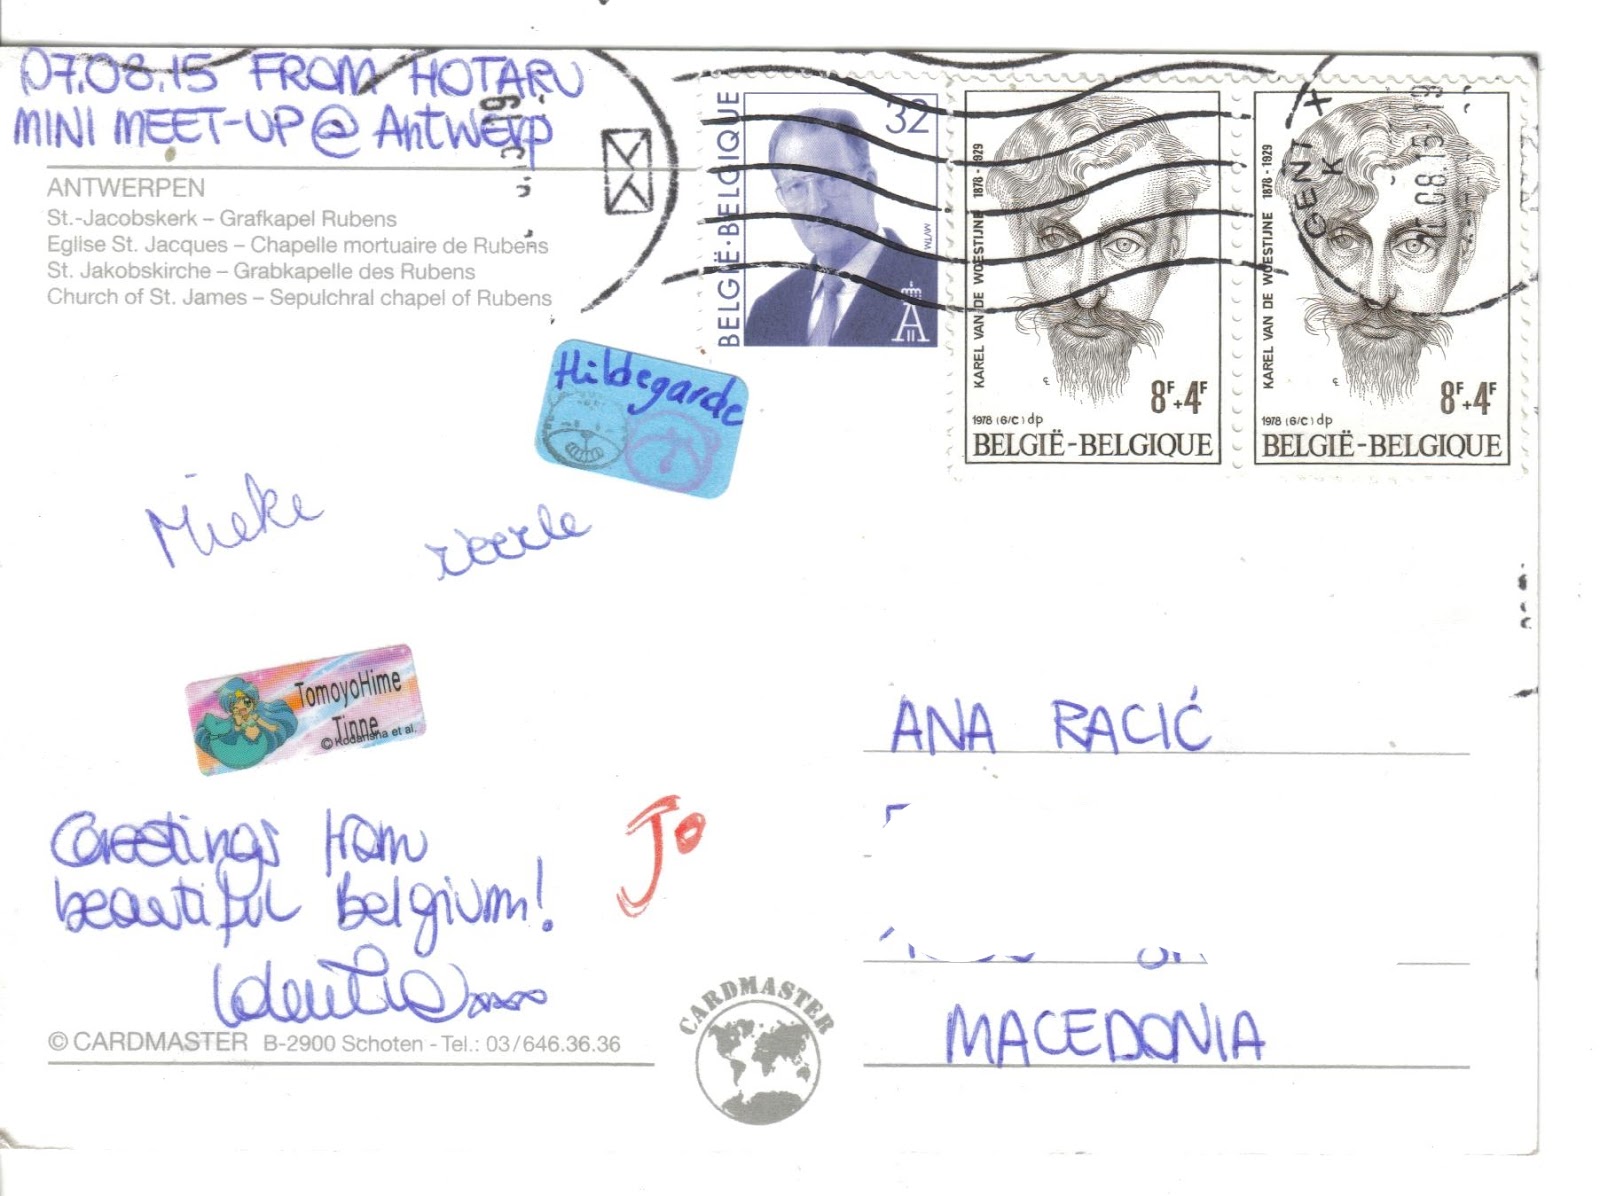 07.08.15 FROM HOTARU
MINI MEET-UP @ Antwerp
ANTWERPEN
St.-Jacobskerk – Grafkapel Rubens
Eglise St. Jacques – Chapelle mortuaire de Rubens
St. Jakobskirche – Grabkapelle des Rubens
Church of St. James – Sepulchral chapel of Rubens
BELGIË·BELGIQUE
32
MVTM
KAREL VAN DE WOESTIJNE 1878-1929
8F+4F
1978 (6/C) dp
BELGIË-BELGIQUE
KAREL VAN DE WOESTIJNE 1878-1929
8F+4F
1978 (6/C) dp
BELGIË-BELGIQUE
GENT X
08.15
19
Hildegarde
Mieke
TomoyoHime
Tinne
© Kodansha et al.
Greetings from
beautiful Belgium!
Jo
ANA RACIĆ
MACEDONIA
© CARDMASTER B-2900 Schoten - Tel.: 03/646.36.36
CARDMASTER